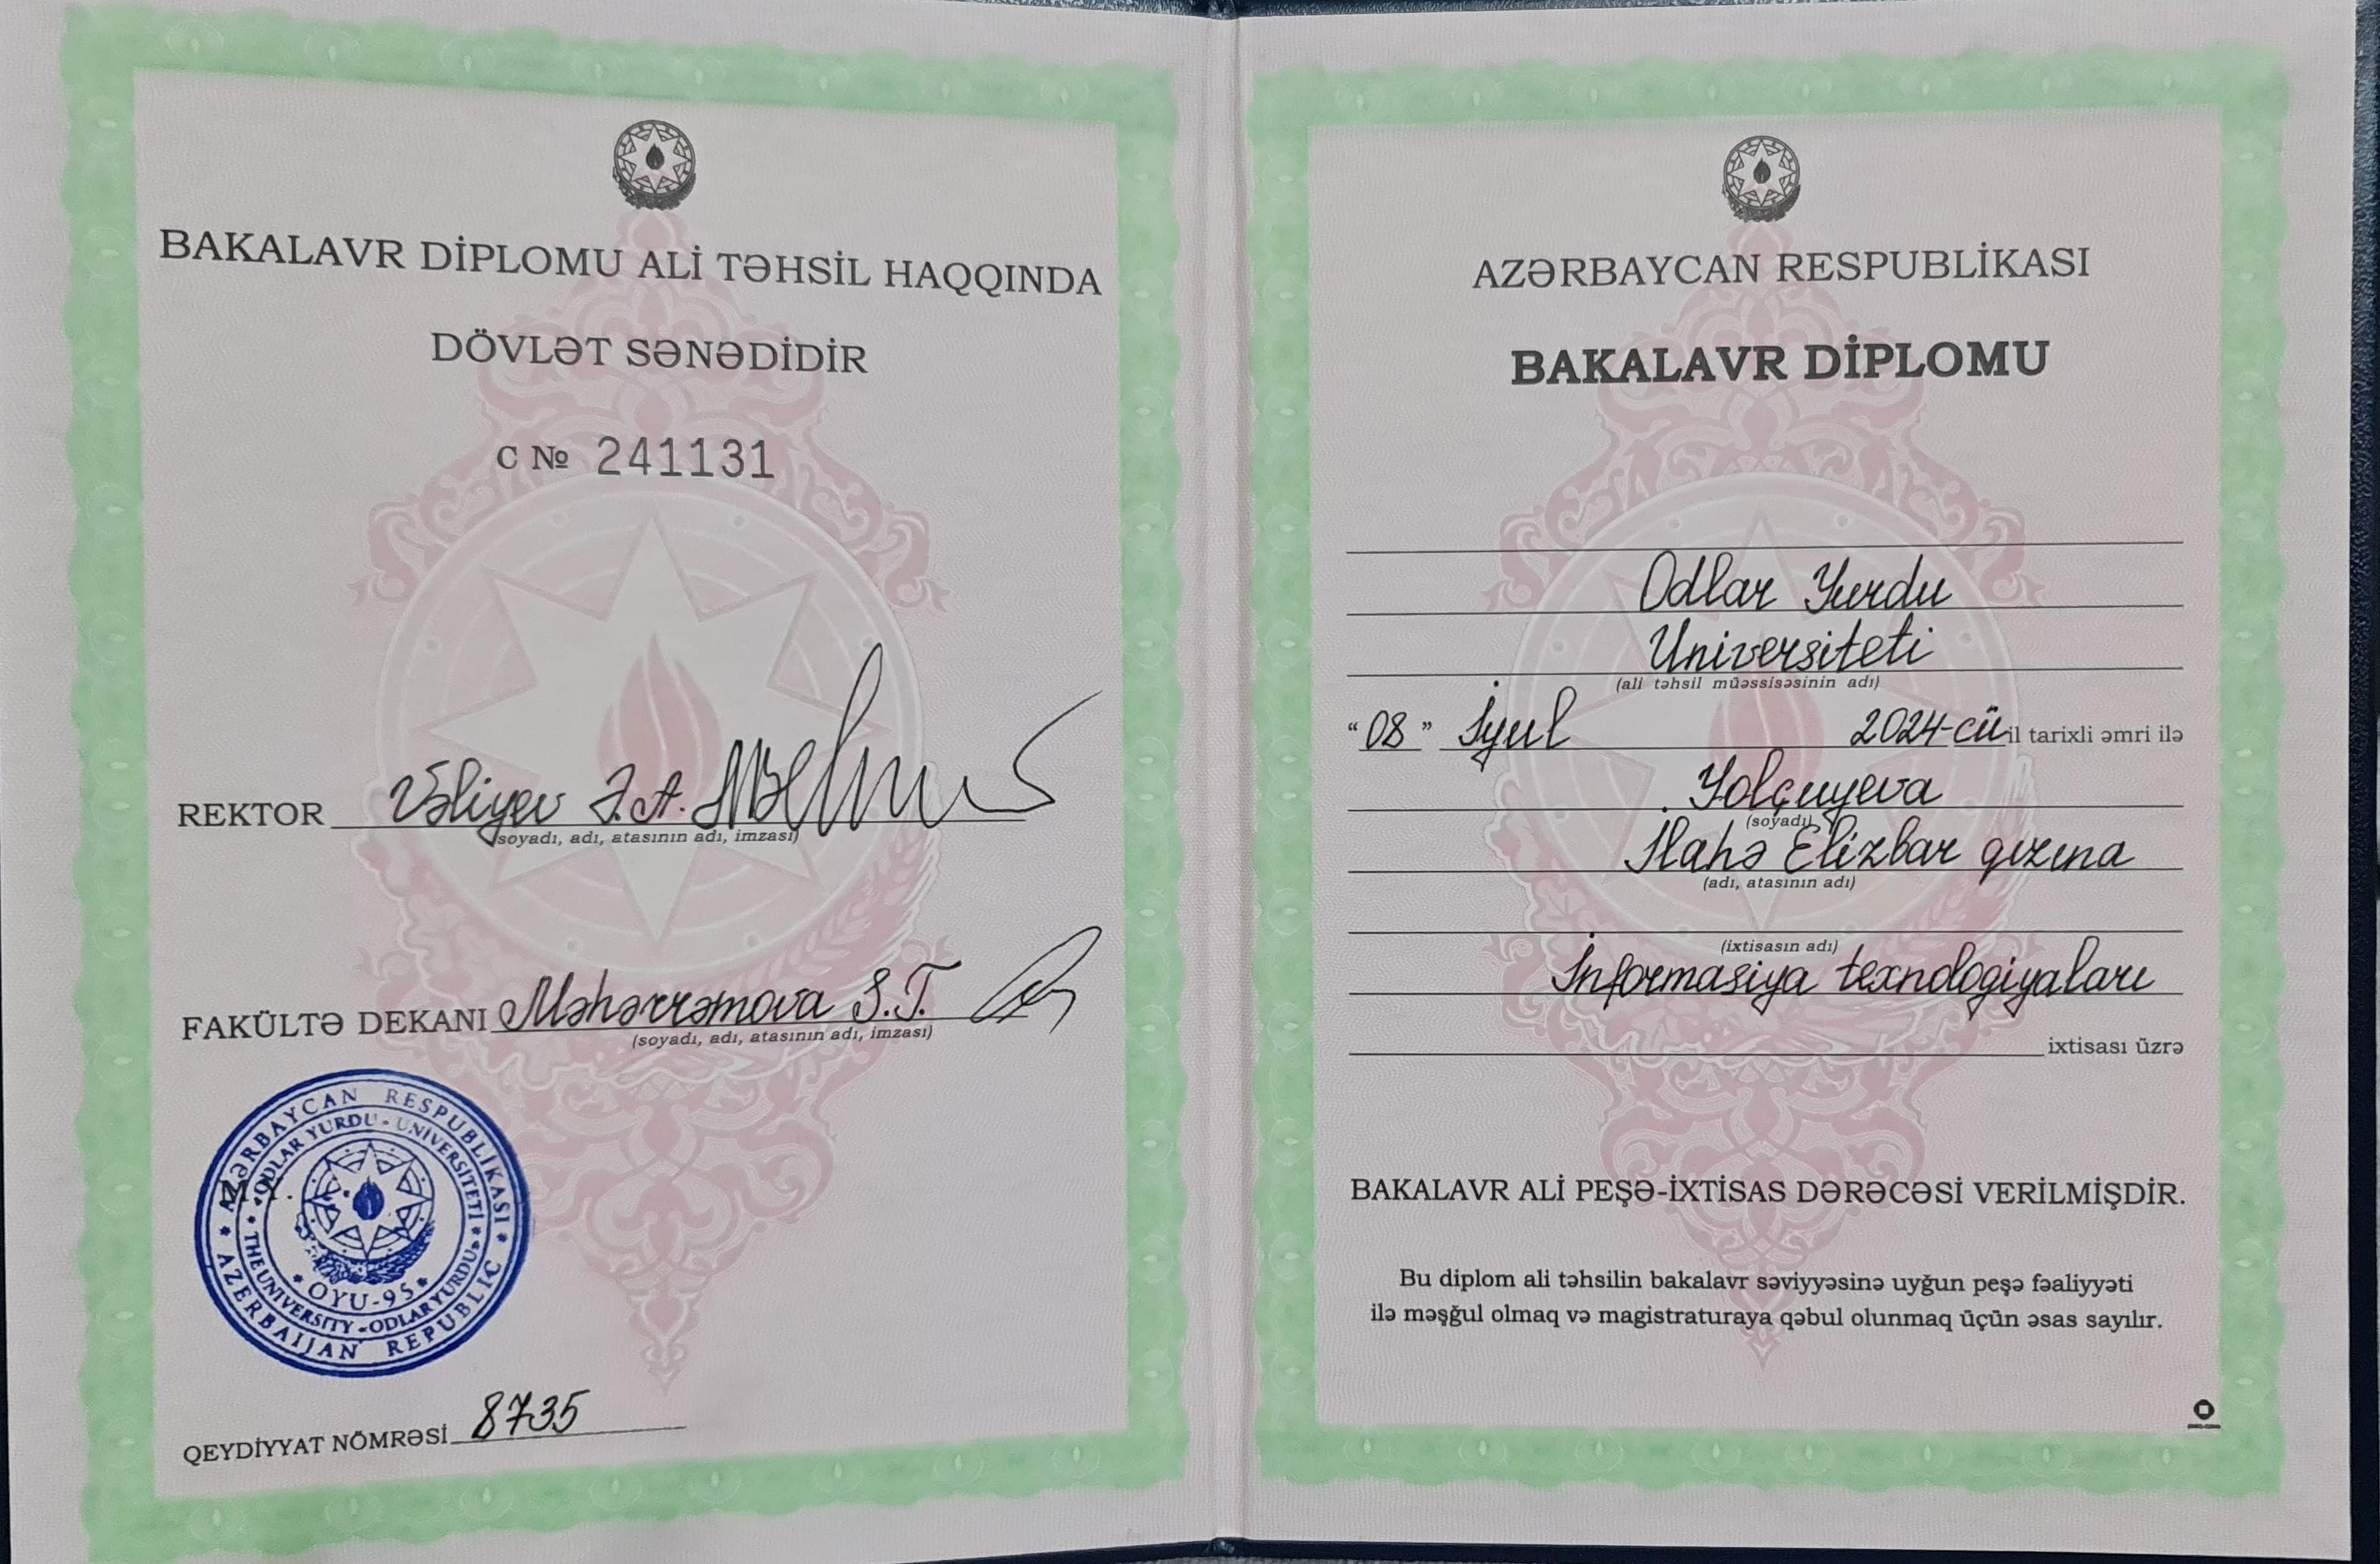 BAKALAVR DİPLOMU ALİ TƏHSİL HAQQINDA
DÖVLƏT SƏNƏDİDİR
C № 241131
REKTOR Vəliyev Ə.A.
(soyadı, adı, atasının adı, imzası)
FAKÜLTƏ DEKANI Məhərrəmova S.T.
(soyadı, adı, atasının adı, imzası)
AZƏRBAYCAN RESPUBLİKASI
ODLAR YURDU - UNİVERSİTETİ
OYU-95
THE UNIVERSITY - ODLAR YURDU
AZERBAIJAN REPUBLIC
QEYDİYYAT NÖMRƏSİ 8735
AZƏRBAYCAN RESPUBLİKASI
BAKALAVR DİPLOMU
Odlar Yurdu
Universiteti
(ali təhsil müəssisəsinin adı)
"08" İyul 2024-cü il tarixli əmri ilə
Yolçuyeva
(soyadı)
İlahə Elizbar qızına
(adı, atasının adı)
(ixtisasın adı)
İnformasiya texnologiyaları
ixtisası üzrə
BAKALAVR ALİ PEŞƏ-İXTİSAS DƏRƏCƏSİ VERİLMİŞDİR.
Bu diplom ali təhsilin bakalavr səviyyəsinə uyğun peşə fəaliyyəti
ilə məşğul olmaq və magistraturaya qəbul olunmaq üçün əsas sayılır.